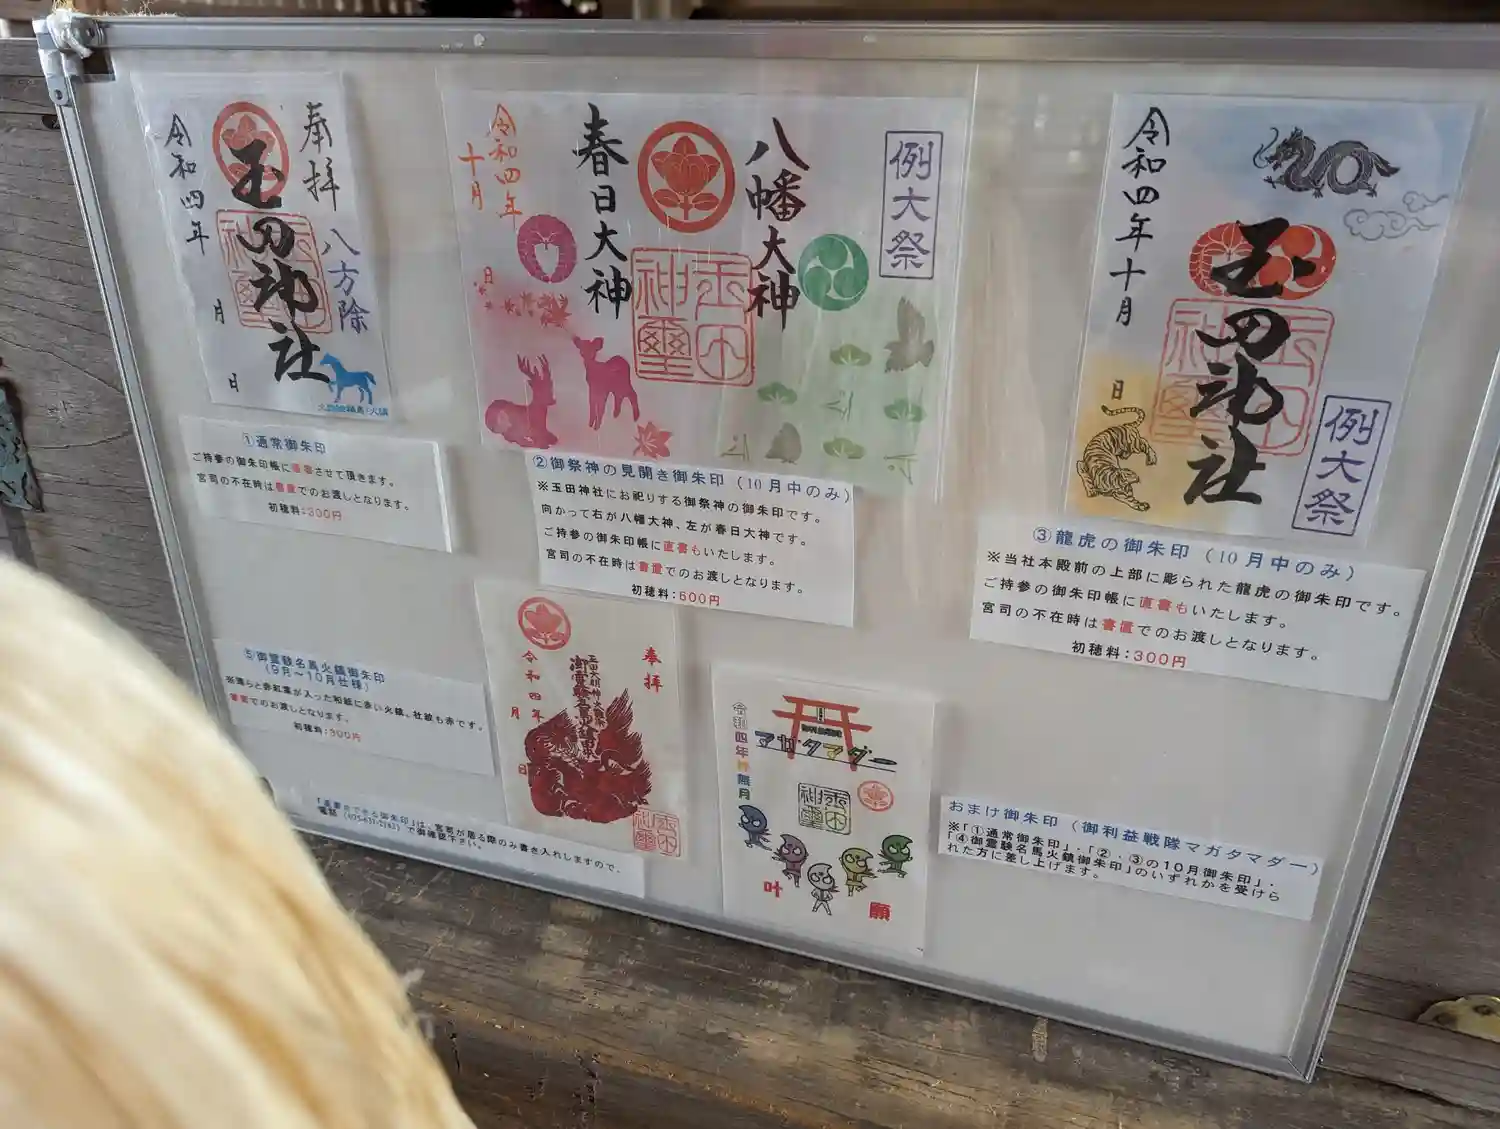 奉拝
八方除
玉田神社
令和四年
月
日
①通常御朱印
ご持参の御朱印帳に直書させて頂きます。
宮司の不在時は書置でのお渡しとなります。
初穂料：300円
例大祭
八幡大神
春日大神
令和四年
十月
日
②御祭神の見開き御朱印（10月中のみ）
※玉田神社にお祀りする御祭神の御朱印です。
向かって右が八幡大神、左が春日大神です。
ご持参の御朱印帳に直書もいたします。
宮司の不在時は書置でのお渡しとなります。
初穂料：600円
玉田神社
例大祭
令和四年十月
日
③龍虎の御朱印（10月中のみ）
※当社本殿前の上部に彫られた龍虎の御朱印です。
ご持参の御朱印帳に直書もいたします。
宮司の不在時は書置でのお渡しとなります。
初穂料：300円
⑤御霊験名馬火鎮御朱印
（9月～10月仕様）
書置でのお渡しとなります。
初穂料：300円
奉拝
令和四年
月
日
マガタマダー
叶
願
おまけ御朱印（御利益戦隊マガタマダー）
※「①通常御朱印」・「②・③の10月御朱印」・
「④御霊験名馬火鎮御朱印」のいずれかを受けら
れた方に差し上げます。